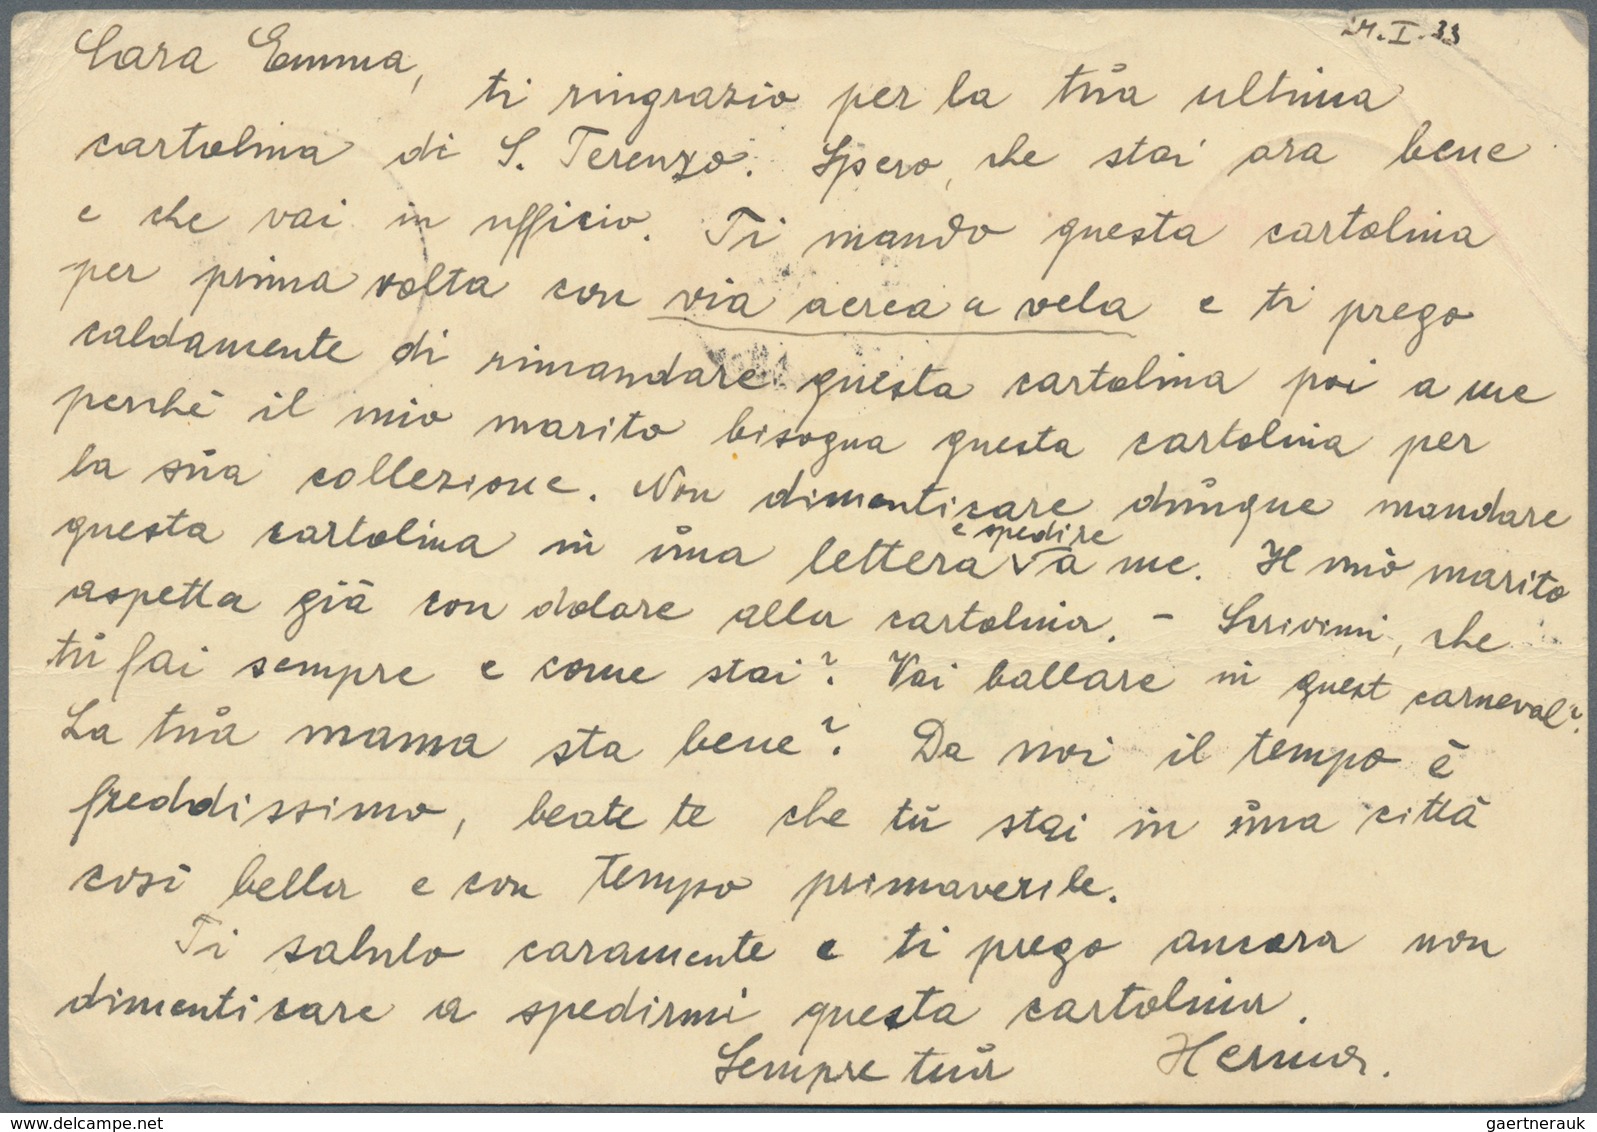 24.I.33
Cara Emma,
ti ringrazio per la tua ultima
cartolina di S. Terenzo. Spero, che stai ora bene
e che vai in ufficio. Ti mando questa cartolina
per prima volta con via aerea a vela e ti prego
caldamente di rimandare questa cartolina poi a me
perchè il mio marito bisogna questa cartolina per
la sua collezione. Non dimenticare dunque mandare
questa cartolina in una lettera √ a me. Il mio marito
e spedire
aspetta già con dolore alla cartolina. – Scrivimi, che
tu fai sempre e come stai? Vai ballare in quest carneval?
La tua mama sta bene? Da noi il tempo è
freddissimo, beate te che tu stai in una città
così bella e con tempo primaverile.
Ti saluto caramente e ti prego ancora non
dimenticare a spedirmi questa cartolina.
Sempre tua Herma.
www.delcampe.net
gaertnerauk